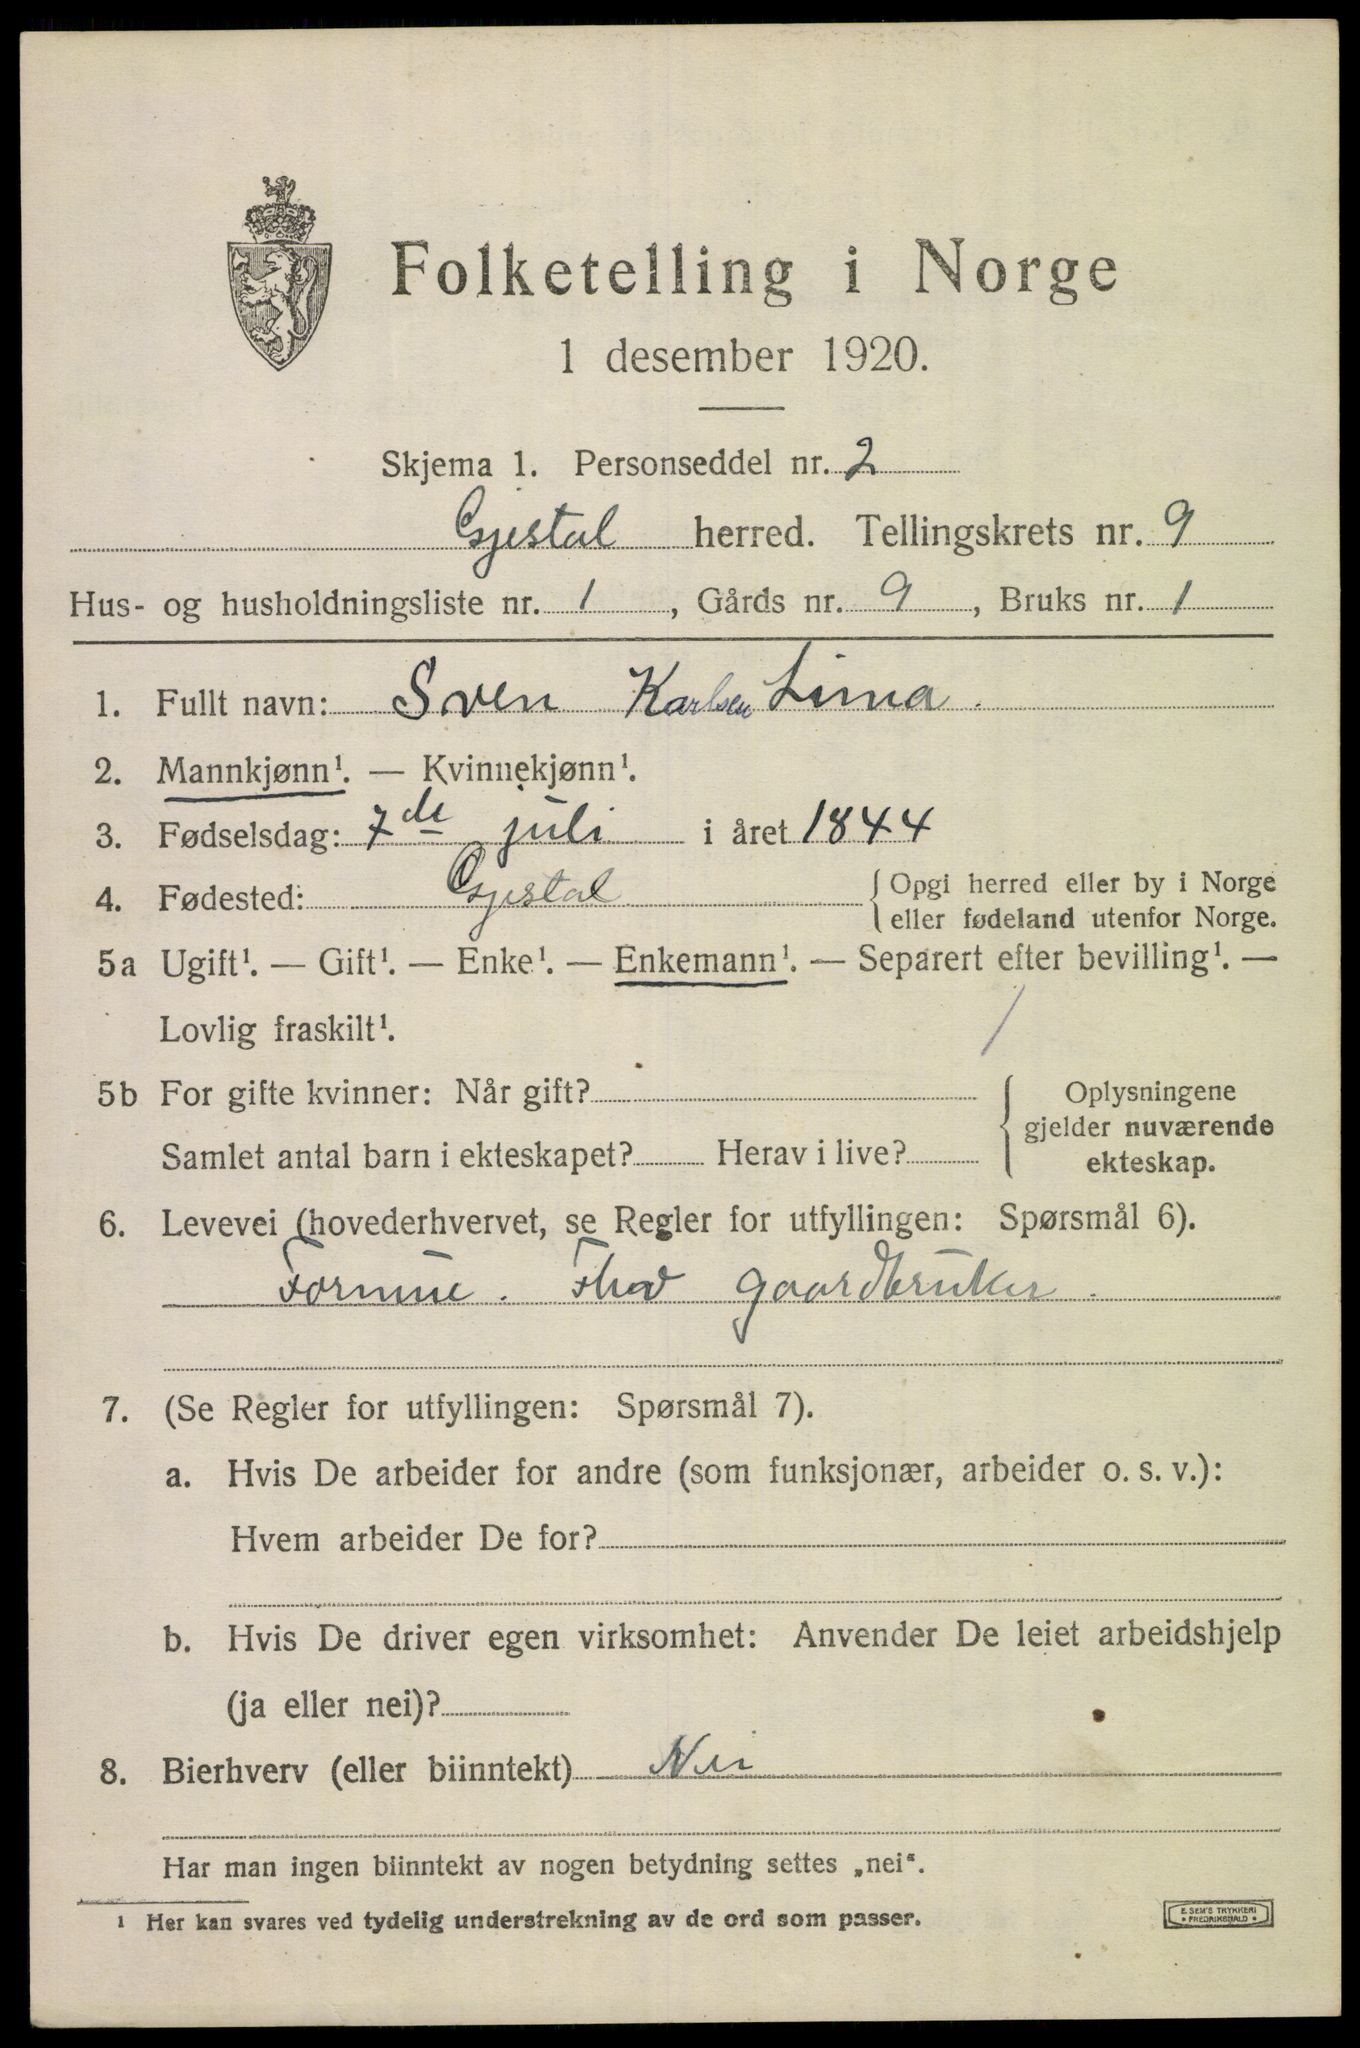 Folketelling i Norge
1 desember 1920.
Skjema 1. Personseddel nr. 2
Gjestal herred. Tellingskrets nr. 9
Hus- og husholdningsliste nr. 1, Gårds nr. 9, Bruks nr. 1
1. Fullt navn: Sven Karlsen Lima.
2. Mannkjønn¹. — Kvinnekjønn¹.
3. Fødselsdag: 7de juli i året 1844
4. Fødested: Gjestal {Opgi herred eller by i Norge
eller fødeland utenfor Norge.
5a Ugift¹. — Gift¹. — Enke¹. — Enkemann¹. — Separert efter bevilling¹. —
Lovlig fraskilt¹.
5b For gifte kvinner: Når gift?
Samlet antal barn i ekteskapet? Herav i live?
Oplysningene
gjelder nuværende
ekteskap.
6. Levevei (hovederhvervet, se Regler for utfyllingen: Spørsmål 6).
Formue. Fhv gaardbruker.
7. (Se Regler for utfyllingen: Spørsmål 7).
a. Hvis De arbeider for andre (som funksjonær, arbeider o. s. v.):
Hvem arbeider De for?
b. Hvis De driver egen virksomhet: Anvender De leiet arbeidshjelp
(ja eller nei)?
8. Bierhverv (eller biinntekt) Nei
Har man ingen biinntekt av nogen betydning settes „nei“.
¹ Her kan svares ved tydelig understrekning av de ord som passer.
E. SEM'S TRYKKERI
• FREDRIKSHALD •